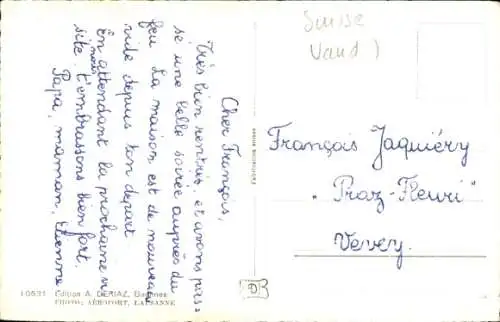 Suisse
Vaud )
Cher François,
Très bien rentrés, et avons pas=
sé une belle soirée auprès du
feu. La maison est de nouveau
vide depuis ton départ
En attendant la prochaine vi
site, nous t'embrassons bien fort.
Papa, maman, Etienne
François Jaquiéry
"Praz-Fleuri"
Vevey.
10531 Edition A. DERIAZ, Baulmes
PHOTO: AÉROPORT, LAUSANNE
D